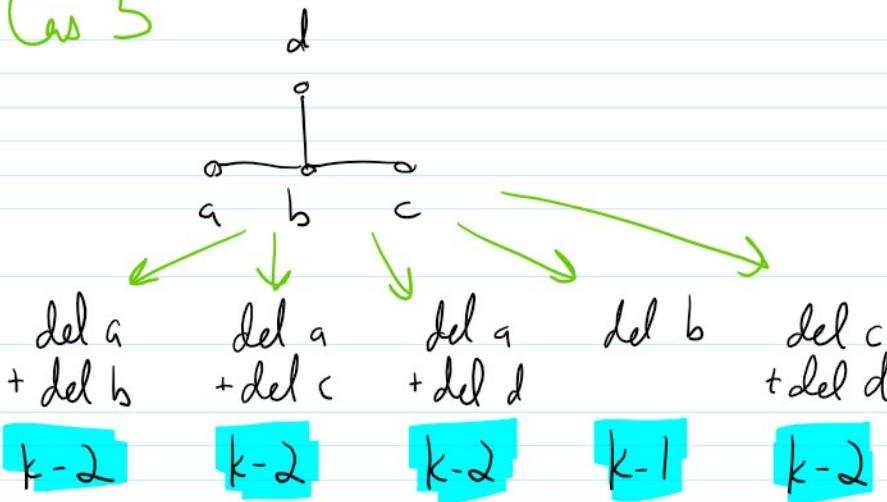 Cas 5
d
a b c
del a del a del a del b del c
+ del b + del c + del d + del d
k-2 k-2 k-2 k-1 k-2